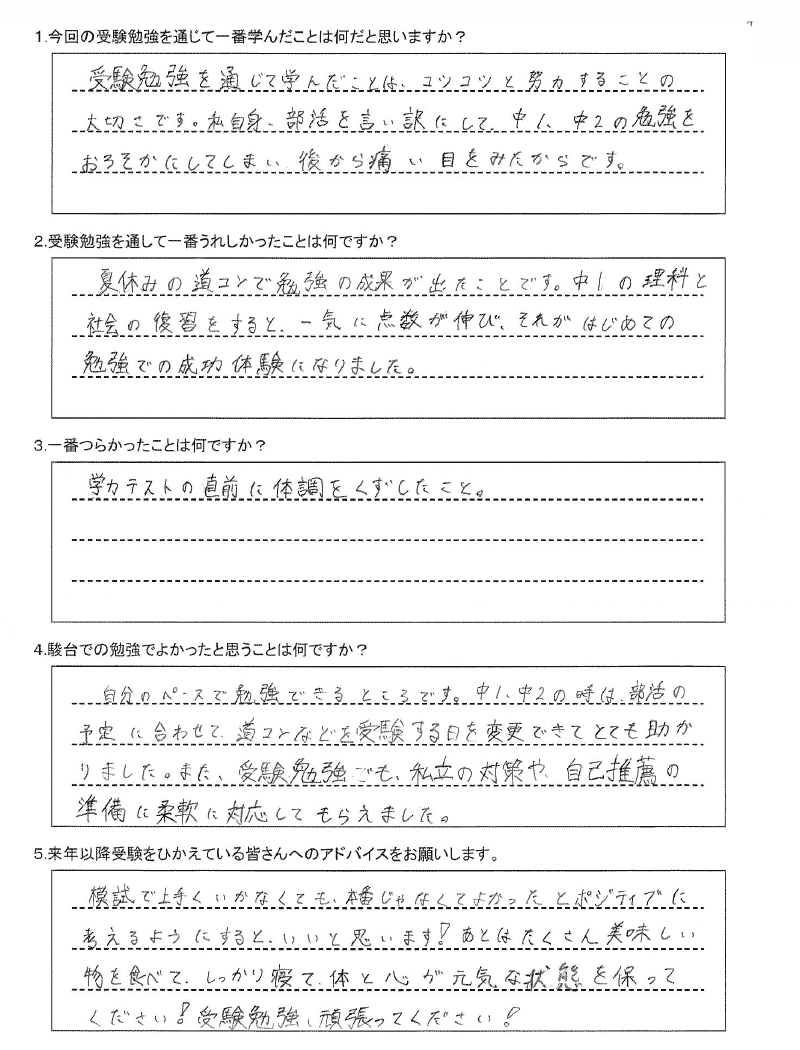 1.今回の受験勉強を通じて一番学んだことは何だと思いますか？
受験勉強を通じて学んだことは、コツコツと努力することの
大切さです。私自身、部活を言い訳にして、中1、中2の勉強を
おろそかにしてしまい、後から痛い目をみたからです。
2.受験勉強を通して一番うれしかったことは何ですか？
夏休みの道コンで勉強の成果が出たことです。中1の理科と
社会の復習をすると、一気に点数が伸び、それがはじめての
勉強での成功体験になりました。
3.一番つらかったことは何ですか？
学力テストの直前に体調をくずしたこと。
4.駿台での勉強でよかったと思うことは何ですか？
自分のペースで勉強できるところです。中1、中2の時は、部活の
予定に合わせて、道コンなどを受験する日を変更できてとても助か
りました。また、受験勉強でも、私立の対策や、自己推薦の
準備に柔軟に対応してもらえました。
5.来年以降受験をひかえている皆さんへのアドバイスをお願いします。
模試で上手くいかなくても、本番じゃなくてよかったとポジティブに
考えるようにすると、いいと思います！あとはたくさん美味しい
物を食べて、しっかり寝て、体と心が元気な状態を保って
ください！受験勉強、頑張ってください！